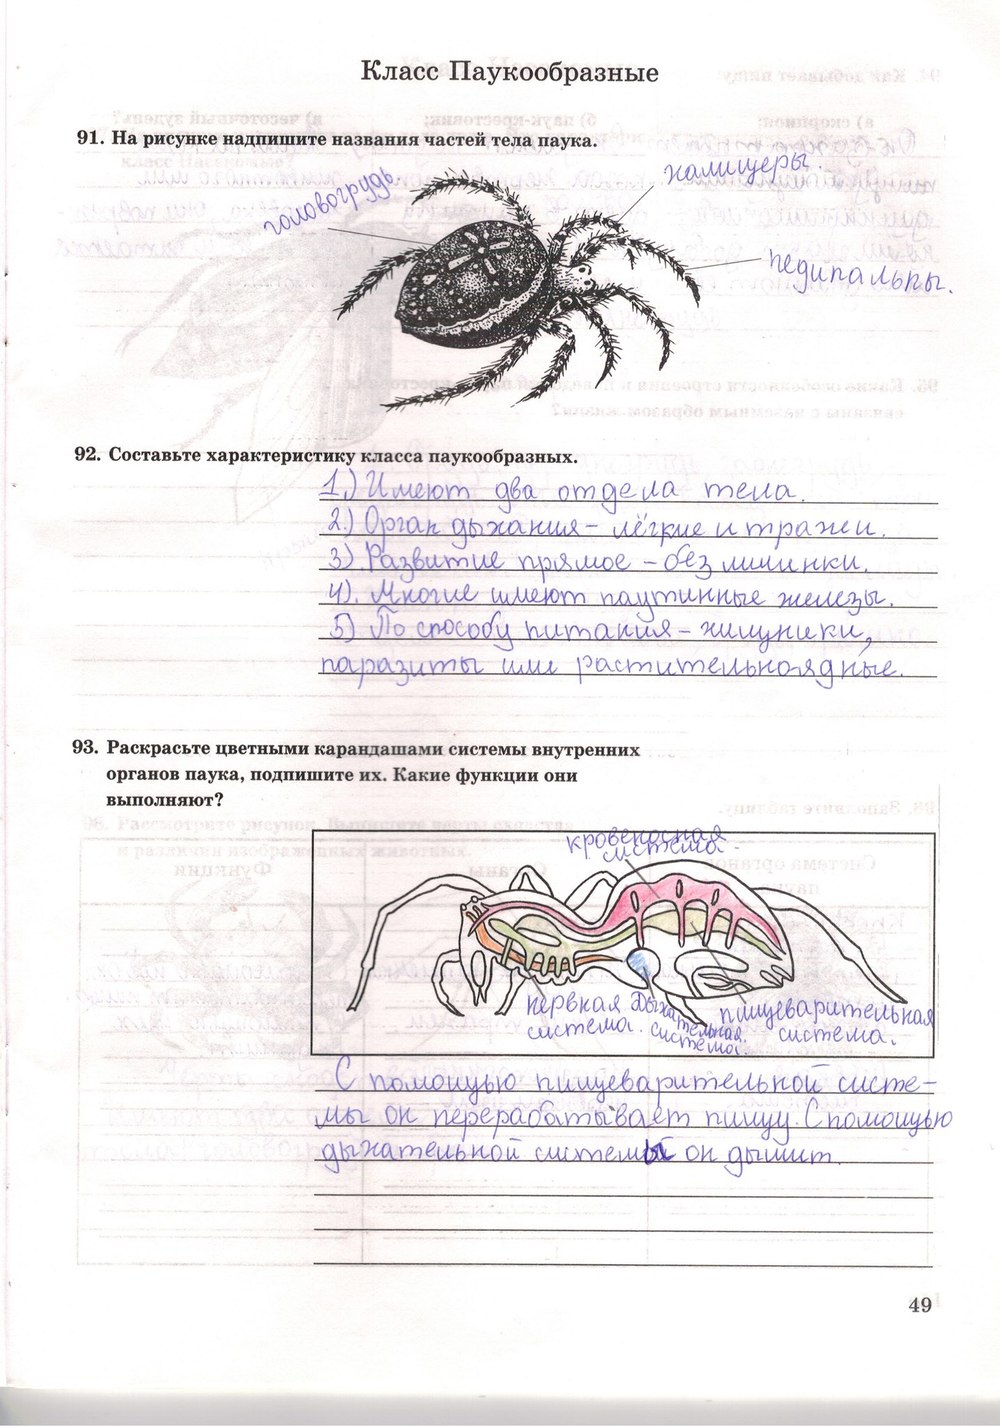 Класс Паукообразные
91. На рисунке надпишите названия частей тела паука.
головогрудь
халицеры.
педипальпы.
92. Составьте характеристику класса паукообразных.
1.) Имеют два отдела тела.
2.) Орган дыхания – лёгкие и трахеи.
3) Развитие прямое – без личинки.
4). Многие имеют паутинные железы.
5) По способу питания – хищники,
паразиты или растительно-ядные.
93. Раскрасьте цветными карандашами системы внутренних
органов паука, подпишите их. Какие функции они
выполняют?
кровеносная
система.
нервная
система.
Дыхательная
система.
пищеварительная
система.
С помощью пищеварительной систе-
мы он перерабатывает пищу. С помощью
дыхательной системы он дышит.
49